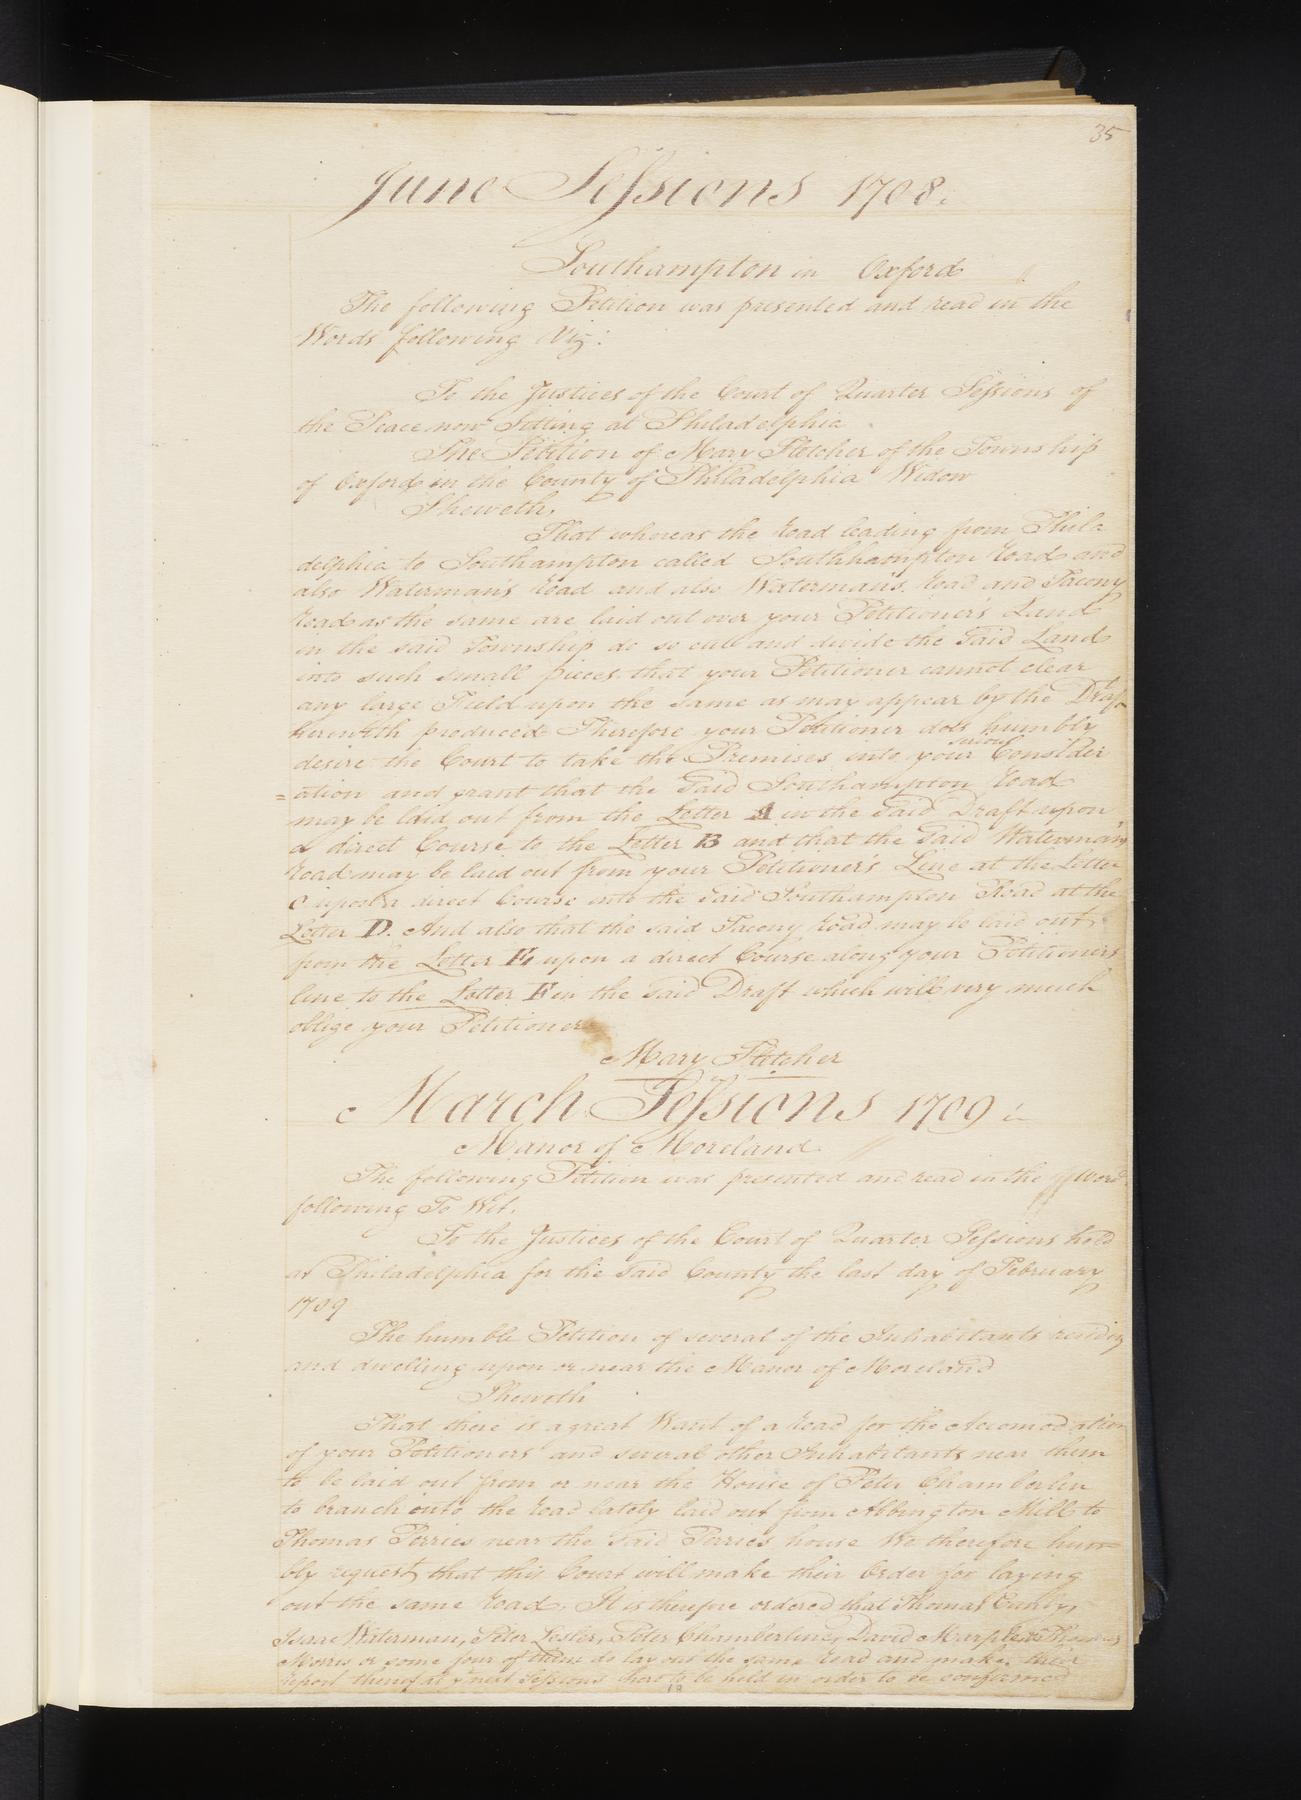 35
June Sessions 1708.
Southampton in Oxford
The following Petition was presented and read in the
Words following Viz:
To the Justices of the Court of Quarter Sessions of
the Peace now Sitting at Philadelphia
The Petition of Mary Fletcher of the Township
of Oxford in the County of Philadelphia Widow
Sheweth,
That whereas the Road leading from Phila
delphia to Southampton called Southhampton Road and
also Waterman's Road and also Waterman's Road and Tacony
Road as the same are laid out over your Petitioner's Land
in the said Township do so cut and divide the Said Land
into such small pieces that your Petitioner cannot clear
any large Field upon the same as may appear by the Draft
herewith produced Therefore your Petitioner doth humbly
desire the Court to take the Premises into your serious Consider
=ation and grant that the Said Southampton Road
may be laid out from the Letter A in the Said Draft upon
a direct Course to the Letter B and that the Said Waterman's
Road may be laid out from your Petitioner's Line at the Letter
C upon a direct Course into the Said Southampton Road at the
Letter D. And also that the said Tacony Road may be laid out
from the Letter E upon a direct Course along your Petitioners
line to the Letter F in the Said Draft which will very much
oblige your Petitioner
Mary Fletcher
March Sessions 1709
Manor of Moreland
The following Petition was presented and read in the Word
following To Wit.
To the Justices of the Court of Quarter Sessions held
at Philadelphia for the Said County the last day of February
1709
The humble Petition of several of the Inhabitants residing
and dwelling upon or near the Manor of Moreland
Sheweth
That there is a great Want of a Road for the Accomodation
of your Petitioners and several other Inhabitants near them
to be laid out from or near the House of Peter Chamberlin
to branch onto the Road lately laid out from Abbington Mill to
Thomas Perries near the Said Perries house We therefore hum=
bly request that this Court will make their Order for laying
out the same Road. It is therefore ordered that Thomas Canby,
Isaac Waterman, Peter Lester, Peter Chamberline, David Marple & Thomas
Morris or some four of them do lay out the same Road and make their
report thereof at ye next Sessions there to be held in order to be confirmed
18